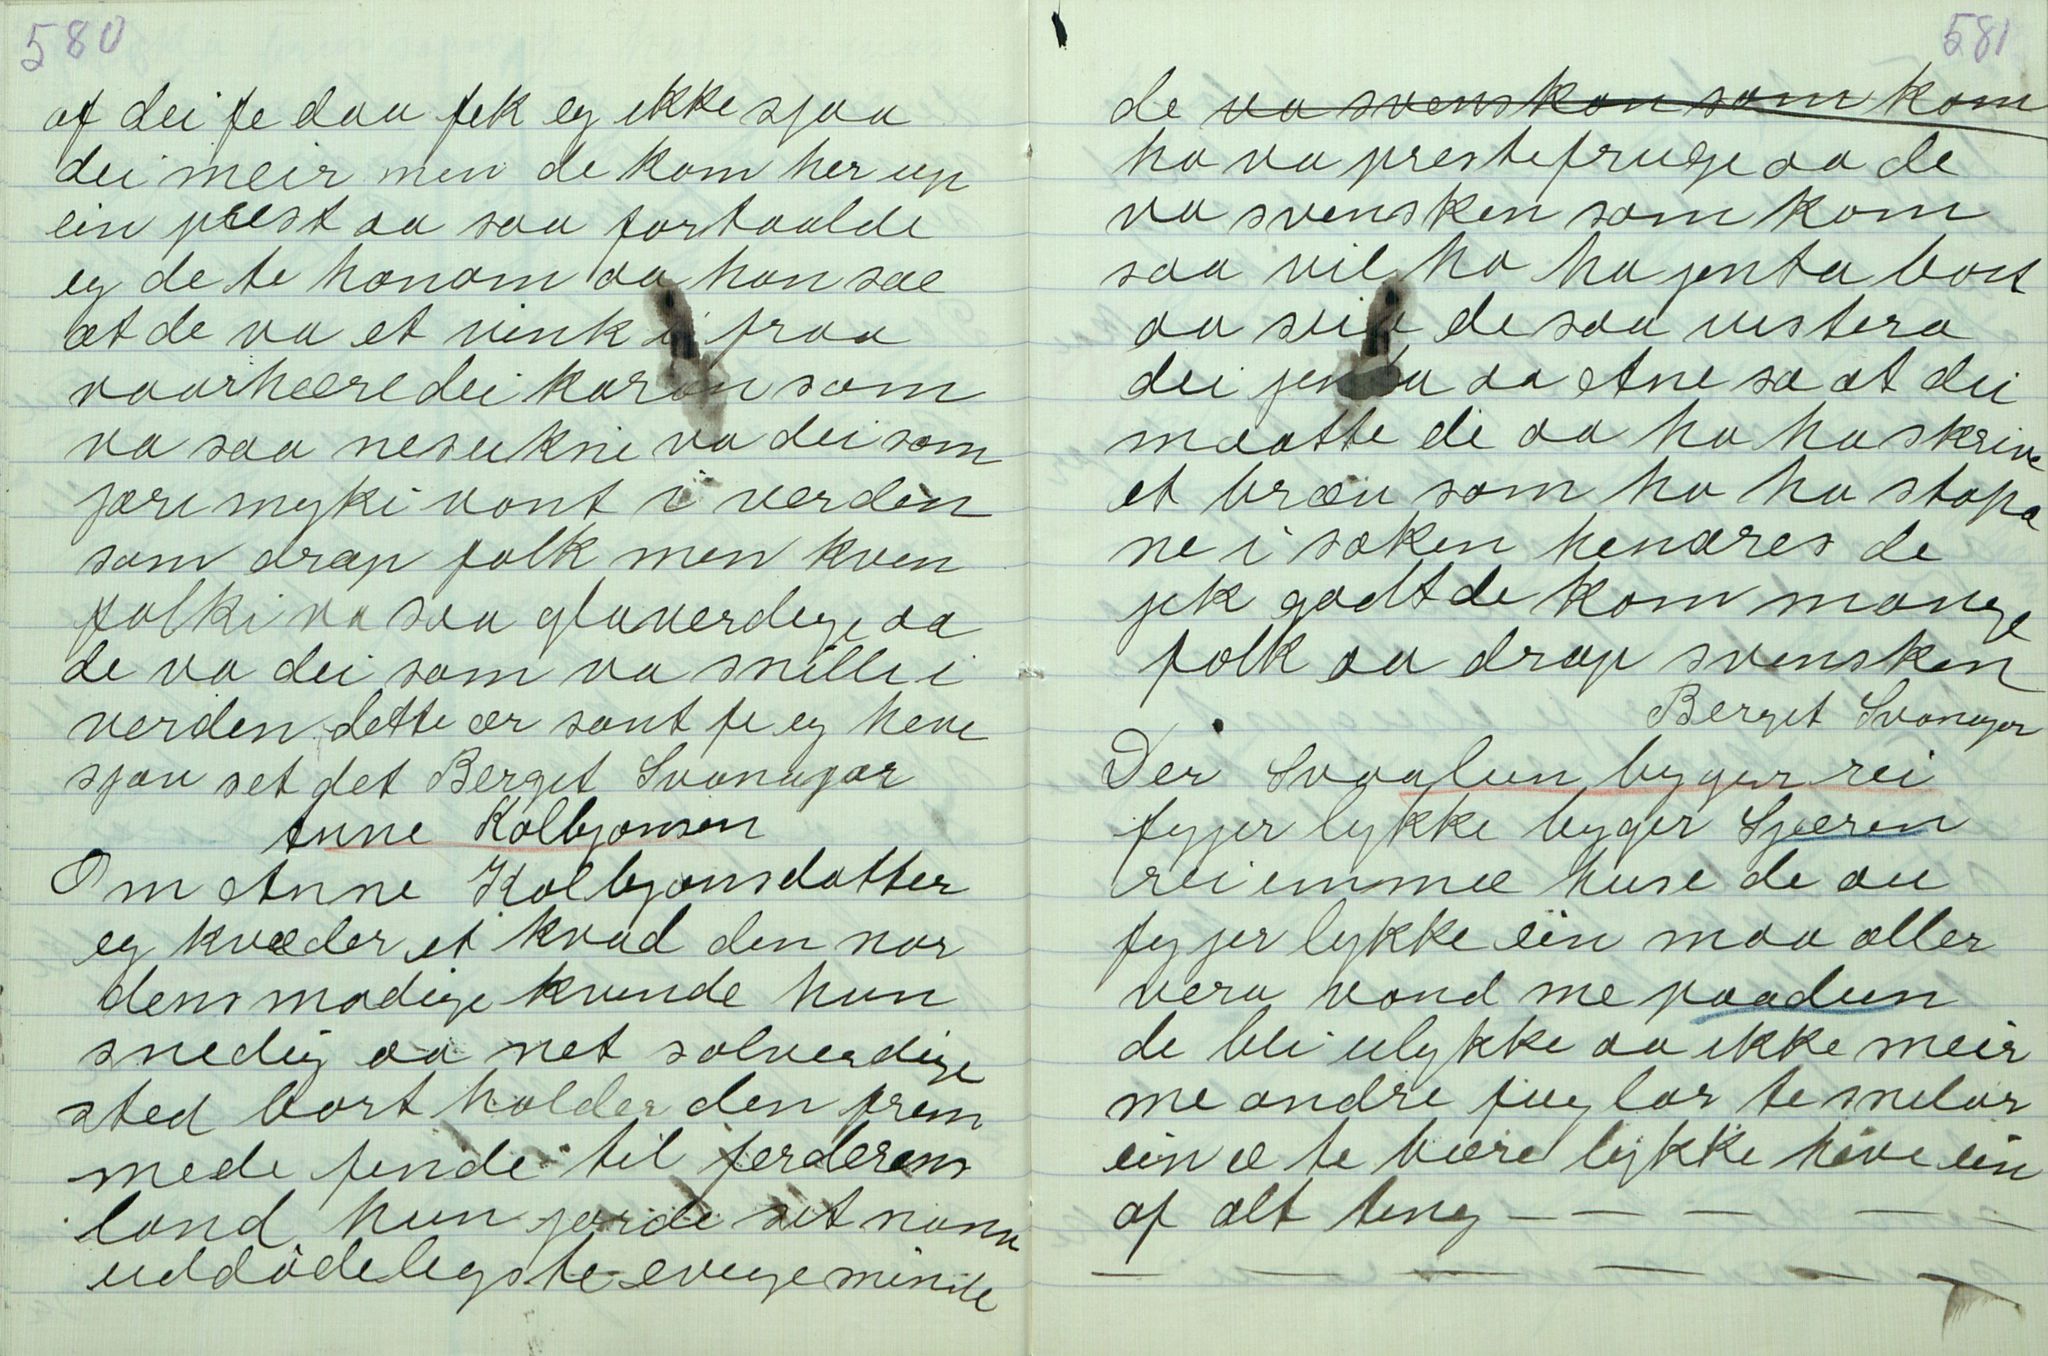 580
af dei fe daa fek eg ikke sjaa
dei meir men de kom her up
ein prest aa saa fortaalde
eg de te honom aa han sae
at de va et vink i fraa
vaarhæredei karan som
va saa nesukne va dei som
jære myki vont i verden
som drap folk men kven
folki va saa glaverdige aa
de va dei som va snille i
verden dette ær sant fe eg heve
sjøu set det Berget Svanugar
Anne Kolbjonsen
Om Anne Kolbjonsdatter
eg kvæder et kvad den nor
dens modige kvinde hun
snedig aa net solverdige
sted bort holder den frem
mede finde til ferderens
land hun jorde sit navn
uddødelegste evige minde
581
de va svenskan som kom
ho va prestefruge aa de
va svensken som kom
saa vil ho ha jenta bort
aa de saa vistera
dei jenta aa Ane sa at dei
maatte de aa ho ha skrive
et bræv som ho ha stopa
ne i soken henæres de
jek godt de kom mange
folk aa drap svensken
Berget Svanugar
Der Svaalun byger rei
fyjer lykke byger Sjæren
rei imme huse de au
fyjer lykke ein maa aller
vera vond me paadun
de bli ulykke aa ikke meir
me andre fuglar te snelar
ein æ te være lykke heve ein
af alt ting — — — — —
— — — — — —